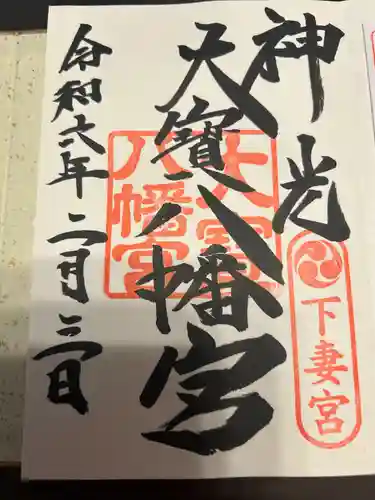 神光
下妻宮
天寳八幡宮
大宝
八幡宮
令和六年二月三日